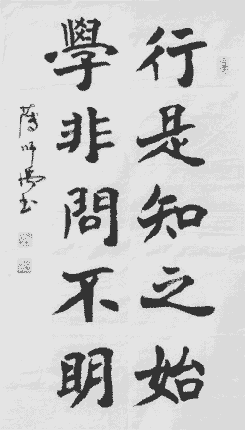 行是知之始
學非問不明